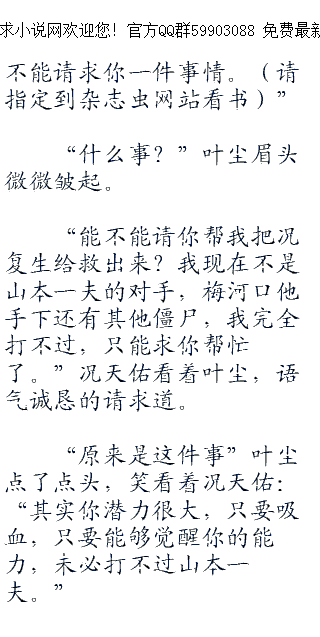 求小说网欢迎您！官方QQ群59903088 免费最新
不能请求你一件事情。（请
指定到杂志虫网站看书）”
“什么事？”叶尘眉头
微微皱起。
“能不能请你帮我把况
复生给救出来？我现在不是
山本一夫的对手，梅河口他
手下还有其他僵尸，我完全
打不过，只能求你帮忙
了。”况天佑看着叶尘，语
气诚恳的请求道。
“原来是这件事”叶尘
点了点头，笑看着况天佑：
“其实你潜力很大，只要吸
血，只要能够觉醒你的能
力，未必打不过山本一
夫。”